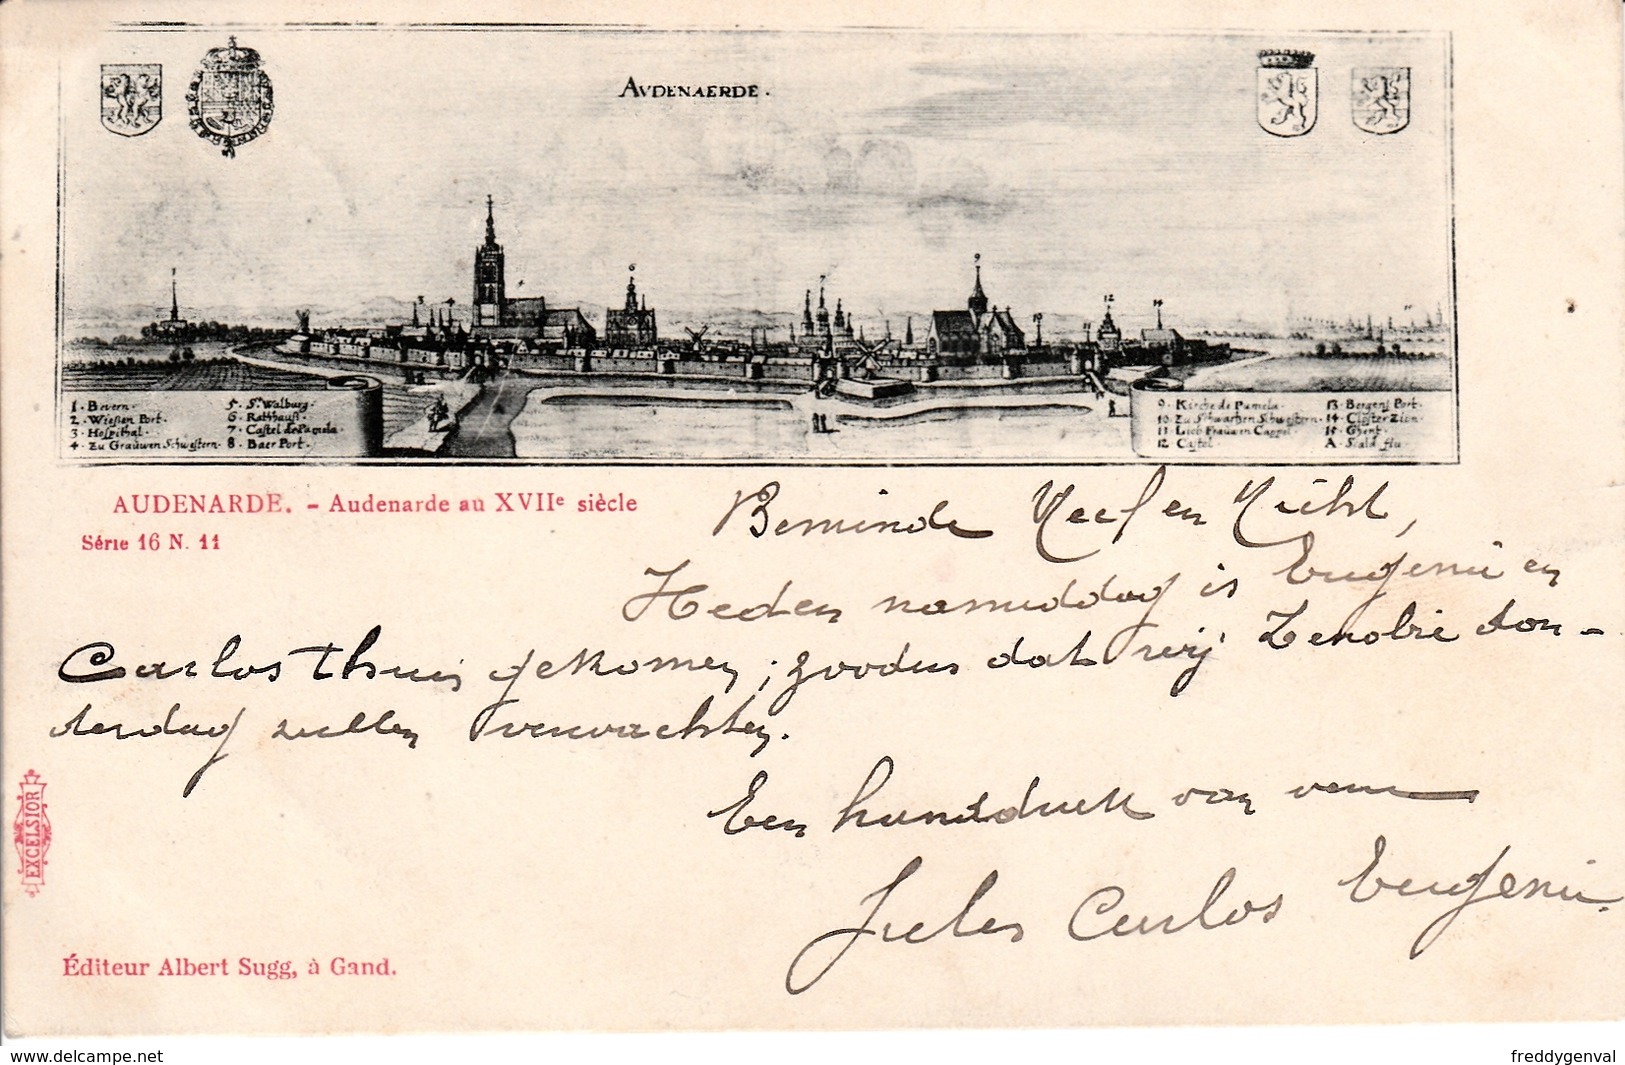 AVDENAERDE.
1. Bevern.
2. Wiessen Port.
3. Hospithal.
4. Zu Grauwen Schwestern.
5. St. Walburg.
6. Rathhauss.
7. Castel de Pamela.
8. Baer Port.
9. Kirche de Pamela.
10. Zu Schwarhen Schwestern.
11. Lieb Frauwen Cappel.
12. Castel
13. Bergens Port.
14. Closter Zion.
15. Ghent.
A. Scald flu
AUDENARDE. - Audenarde au XVIIe siècle
Série 16 N. 11
Beminde Neef en Nicht,
Heden namiddag is Eugenie en
Carlos thuis gekomen; zoodus dat wij Zenobie don-
derdag zullen verwachten.
Een handdruk van
Jules Carlos Eugenie.
EXCELSIOR
Éditeur Albert Sugg, à Gand.
delcampe.net
freddygenval